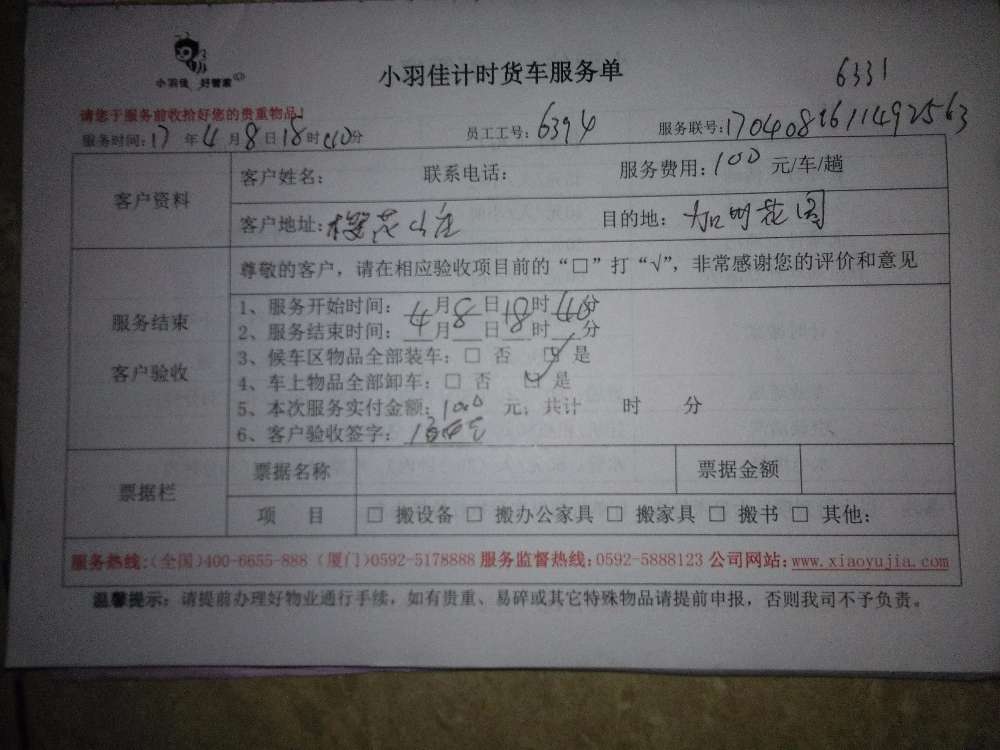 小羽佳 好管家
小羽佳计时货车服务单
6331
请您于服务前收拾好您的贵重物品!
服务时间:17年4月8日18时40分 员工工号:6394 服务联号:1704081611492563
客户资料
客户姓名: 联系电话: 服务费用:100元/车/趟
客户地址:樱花山庄 目的地:加州花园
尊敬的客户，请在相应验收项目前的“□”打“√”，非常感谢您的评价和意见
服务结束
客户验收
1、服务开始时间:4月8日18时40分
2、服务结束时间:__月__日__时__分
3、候车区物品全部装车:□ 否 □ 是
4、车上物品全部卸车:□ 否 □ 是
5、本次服务实付金额:100元，共计 时 分
6、客户验收签字:
票据栏
票据名称 票据金额
项 目 □ 搬设备 □ 搬办公家具 □ 搬家具 □ 搬书 □ 其他:
服务热线:(全国)400-6655-888 (厦门)0592-5178888 服务监督热线:0592-5888123 公司网站:www.xiaoyujia.com
温馨提示:请提前办理好物业通行手续，如有贵重、易碎或其它特殊物品请提前申报，否则我司不予负责。